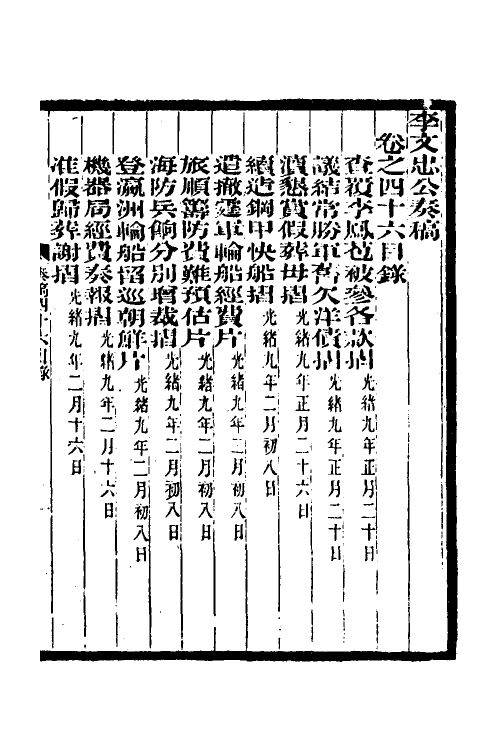 李文忠公奏稿
卷之四十六目錄
查覆李鳳苞被參各款摺光緒九年正月二十日
議結常勝軍舊欠洋債摺光緒九年正月二十日
瀆懇賞假葬母摺光緒九年正月二十六日
續造鋼甲快船摺光緒九年二月初八日
遣撤霆軍輪船經費片光緒九年二月初八日
旅順籌防費難預估片光緒九年二月初八日
海防兵餉分別增裁摺光緒九年二月初八日
登瀛洲輪船留巡朝鮮片光緒九年二月初八日
機器局經費奏報摺光緒九年二月十六日
准假歸葬謝摺光緒九年二月十六日
奏稿四十六目錄